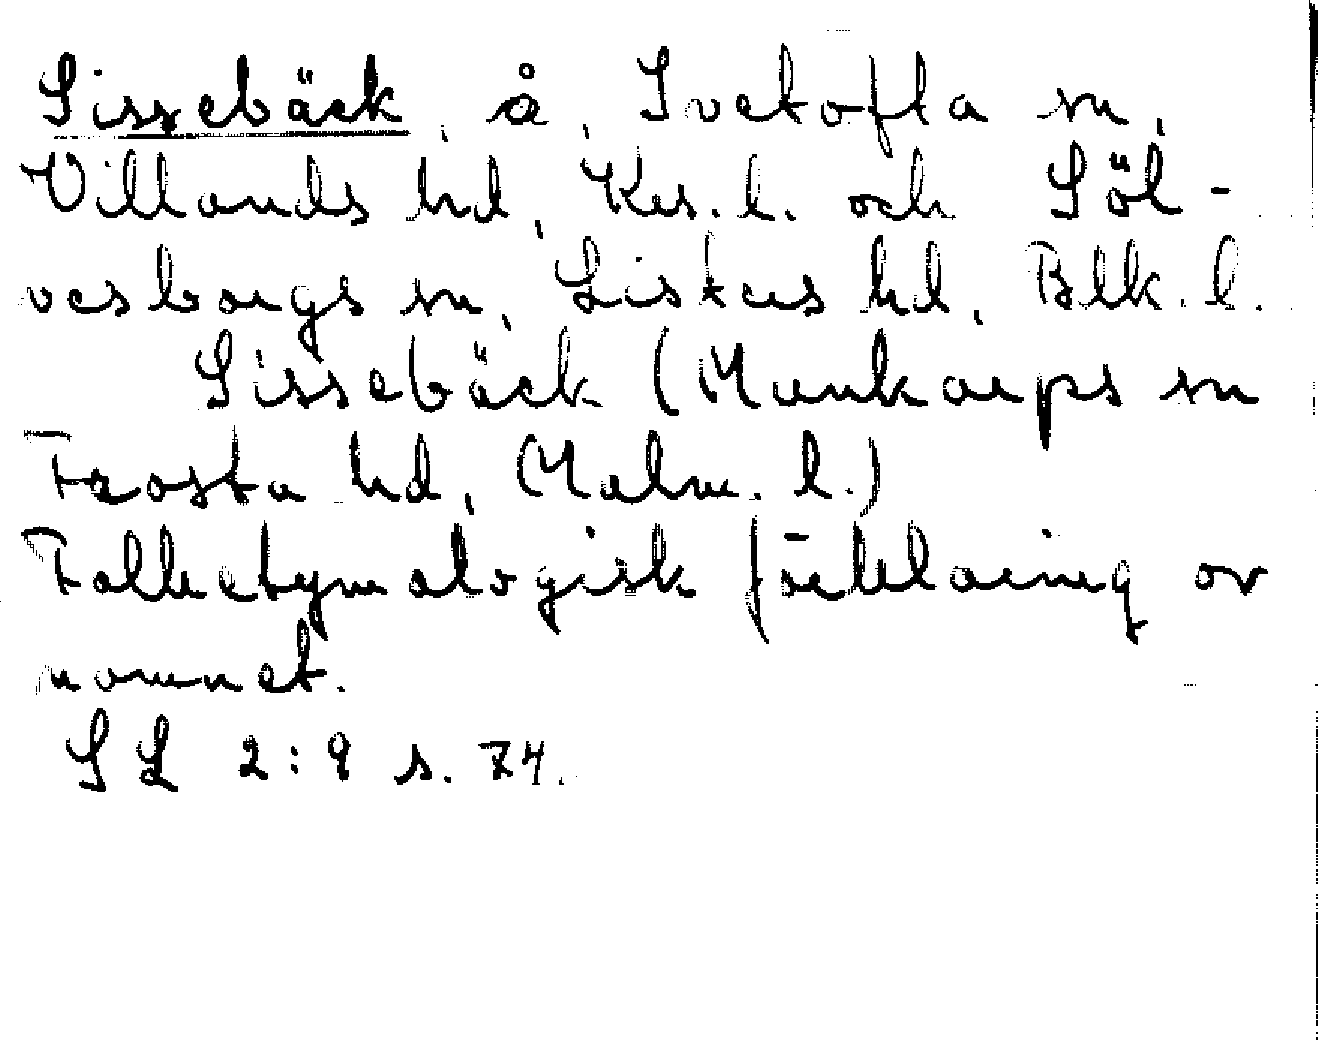 Sissebäck, å, Ivetofta sn,
Villands hd, Krs. l. och Söl-
vesborgs sn, Listers hd, Blk. l.
Sissebäck (Munkarps sn
Frosta hd, Malm. l.)
Folketymologisk förklaring av
namnet.
SL 2:9 s. 74.